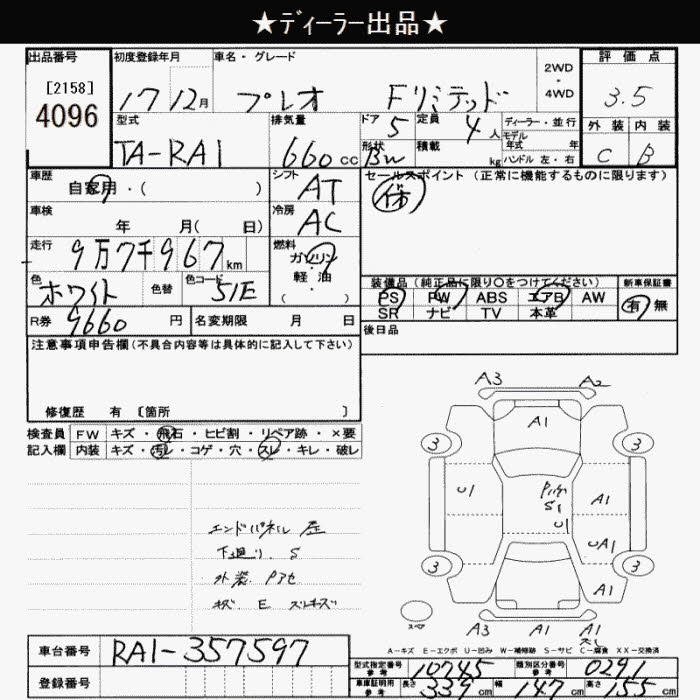 ★ディーラー出品★
出品番号 初度登録年月 車名・グレード 2WD・4WD 評価点
[2158] 4096 17 12月 プレオ Fリミテッド 3.5
型式 排気量 ドア 定員 ディーラー・並行 外装 内装
TA-RA1 660cc 5 4人 モデル年式 年式 C B
形状 Bw 積載 kg ハンドル 左・右
車歴 自家用・( ) シフト AT セールスポイント(正常に機能するものに限ります)
車検 年 月( 日) 冷房 AC
走行 9万7千967km 燃料 ガソリン・軽・油 ( )
色 ホワイト 色替 色コード 51E
装備品(純正品に限り○をつけてください) 新車保証書
PS PW ABS エアB AW 有 無
SR ナビ TV 本革
R券 9660円 名変期限 月 日 後日品
注意事項申告欄(不具合内容等は具体的に記入して下さい)
修復歴 有 〔箇所 〕
検査員 FW キズ・飛石・ヒビ割・リペア跡・×要
記入欄 内装 キズ・汚レ・コゲ・穴・スレ・キレ・破レ
A3 A2
A1
3 3
U1 A1
S1
U1
UA1
3 3
A1
A3 A1 A1
エンドパネル 歪
下廻り S
外装 Pアセ
E スレキズ
A-キズ E-エクボ U-凹み W-補修跡 S-サビ C-腐食 XX-交換済
車台番号 RA1-357597
登録番号
型式指定番号 参考 10745 類別区分番号 参考 0291
車庫証明用 参考 長さ 339cm 幅 147cm 高さ 155cm